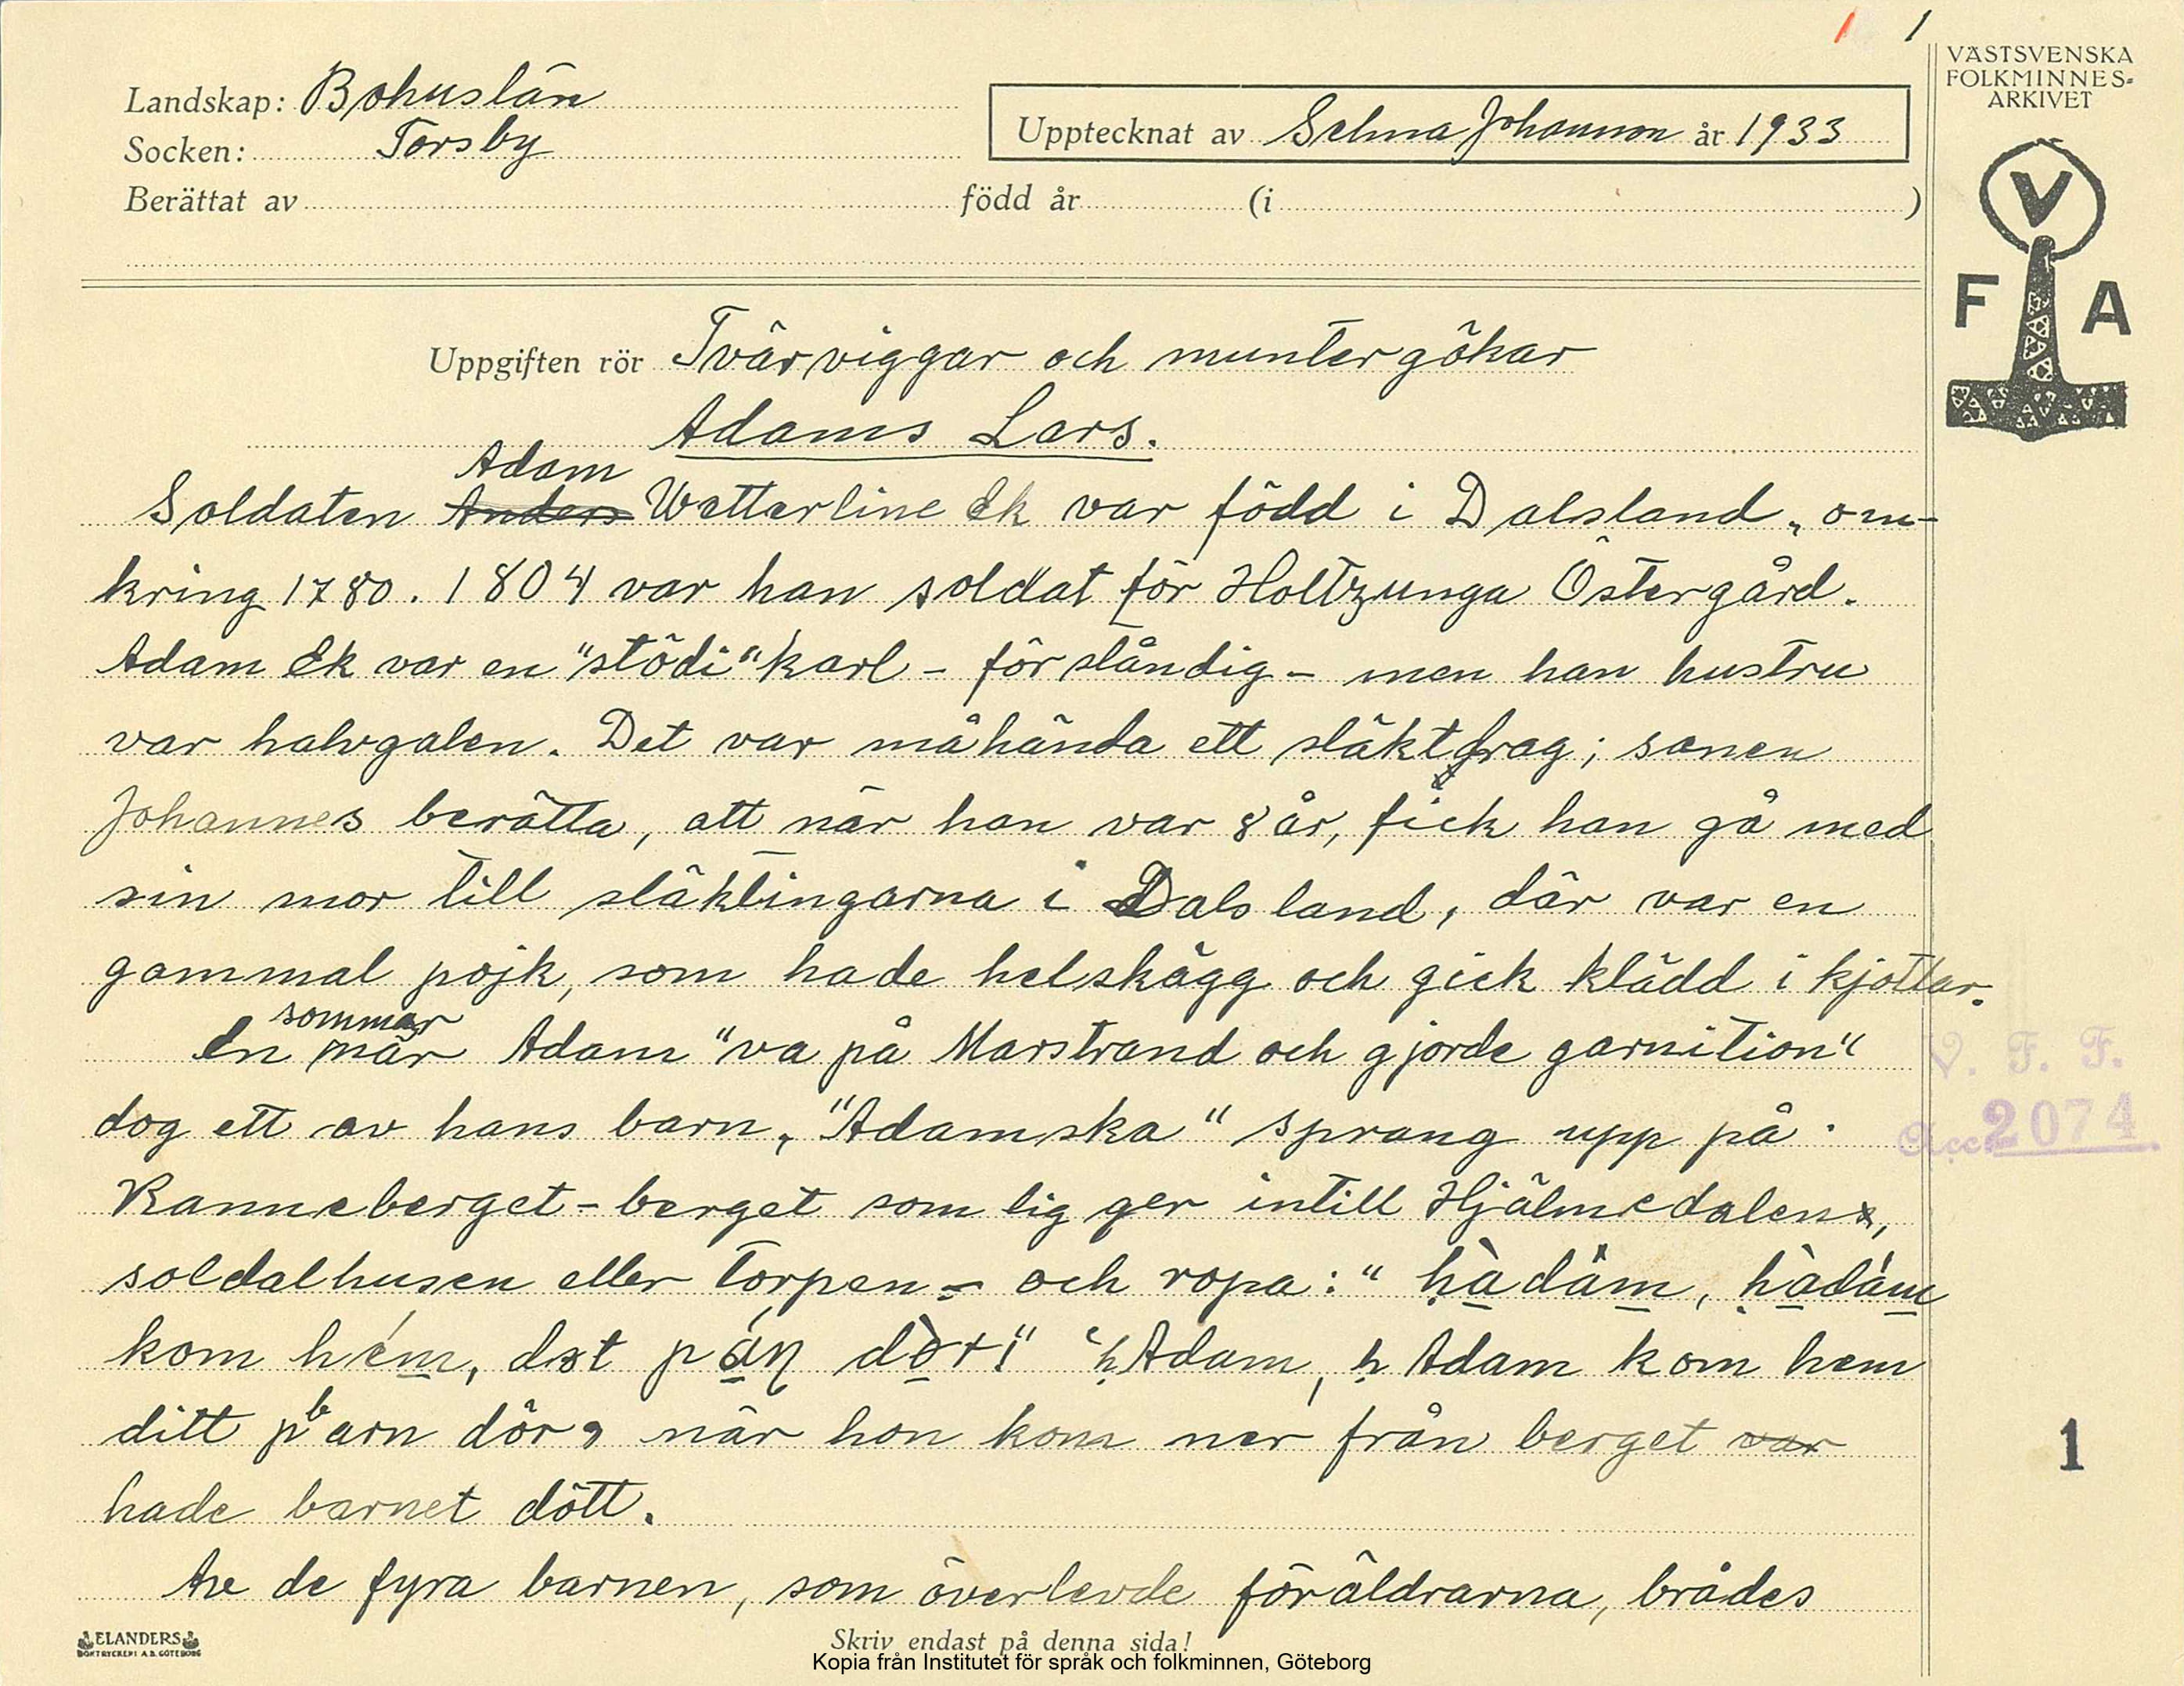 1 1
VÄSTSVENSKA
FOLKMINNES-
ARKIVET
Landskap: Bohuslän
Socken: Torsby
Upptecknat av Selma Johansson år 1933
Berättat av född år (i )
V
F A
Uppgiften rör Tvärviggar och muntergökar
Adams Lars.
Adam
Soldaten Anders Wetterline Ek var född i Dalsland, om-
kring 1780. 1804 var han soldat för Holtzunga Östergård.
Adam Ek var en "stödi" karl - förståndig - men han hustru
var halvgalen. Det var måhända ett släktdrag; sonen
Johannes berätta, att när han var 8 år, fick han gå med
sin mor till släktingarna i Dalsland, där var en
gammal pojk, som hade helskägg och gick klädd i kjottlar.
sommar
En när Adam "va på Marstrand och gjorde garnition"
dog ett av hans barn, "Adamska" sprang upp på
Ranneberget - berget som ligger intill Hjälmedalen,
soldathusen eller torpen - och ropa: "hàdám, hàdám
kom hém, det pán dör!" "hAdam, h Adam kom hem
ditt pbarn dör, när hon kom ner från berget var
hade barnet dött.
Av de fyra barnen, som överlevde föräldrarna, brådes
V. F. F.
Acc. 2074
1
ELANDERS
BOKTRYCKERI A.B. GÖTEBORG
Skriv endast på denna sida!
Kopia från Institutet för språk och folkminnen, Göteborg